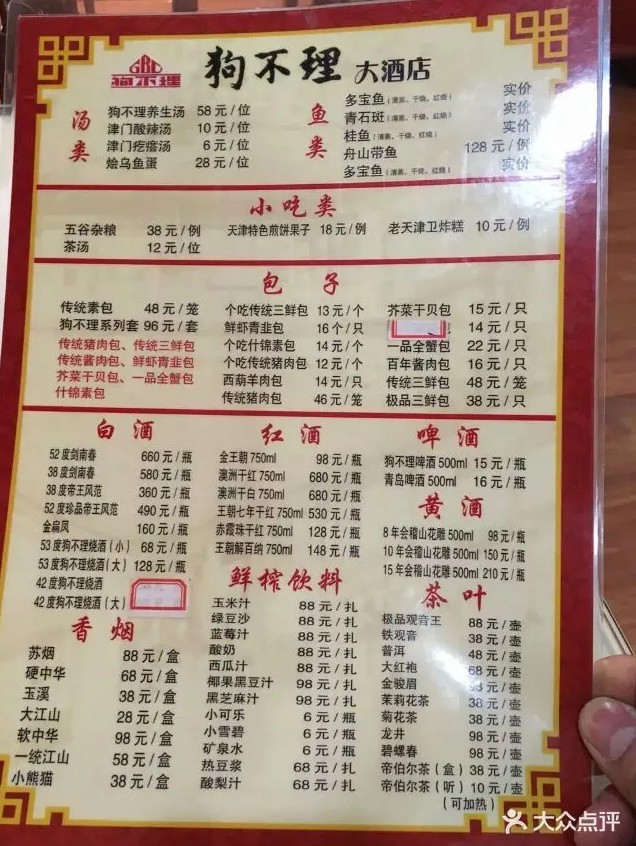 GBL
狗不理
狗不理 大酒店
汤类
狗不理养生汤 58元/位
津门酸辣汤 10元/位
津门疙瘩汤 6元/位
烩乌鱼蛋 28元/位
鱼类
多宝鱼(清蒸、干烧、红烧) 实价
青石斑(清蒸、干烧、红烧) 实价
桂鱼(清蒸、干烧、红烧) 实价
舟山带鱼 128元/例
多宝鱼(清蒸、干烧、红烧) 实价
小吃类
五谷杂粮 38元/例 天津特色煎饼果子 18元/例 老天津卫炸糕 10元/例
茶汤 12元/位
包子
传统素包 48元/笼
狗不理系列套 96元/套
传统猪肉包、传统三鲜包
传统酱肉包、鲜虾青韭包
芥菜干贝包、一品全蟹包
什锦素包
个吃传统三鲜包 13元/个
鲜虾青韭包 16个/只
个吃什锦素包 14元/个
个吃传统猪肉包 12元/个
西葫羊肉包 14元/只
传统猪肉包 46元/笼
芥菜干贝包 15元/只
包 14元/只
一品全蟹包 22元/只
百年酱肉包 16元/只
传统三鲜包 48元/笼
极品三鲜包 38元/只
白酒
52度剑南春 660元/瓶
38度剑南春 580元/瓶
38度帝王风范 360元/瓶
52度珍品帝王风范 490元/瓶
金扁凤 160元/瓶
53度狗不理烧酒(小) 68元/瓶
53度狗不理烧酒(大) 128元/瓶
42度狗不理烧酒
42度狗不理烧酒(大)
红酒
金王朝750ml 98元/瓶
澳洲干红750ml 680元/瓶
澳洲干白750ml 680元/瓶
王朝七年干红750ml 530元/瓶
赤霞珠干红750ml 128元/瓶
王朝解百纳750ml 148元/瓶
啤酒
狗不理啤酒500ml 15元/瓶
青岛啤酒500ml 16元/瓶
黄酒
8年会稽山花雕500ml 98元/瓶
10年会稽山花雕500ml 150元/瓶
15年会稽山花雕500ml 210元/瓶
香烟
苏烟 88元/盒
硬中华 68元/盒
玉溪 38元/盒
大江山 28元/盒
软中华 98元/盒
一统江山 58元/盒
小熊猫 38元/盒
鲜榨饮料
玉米汁 88元/扎
绿豆沙 88元/扎
蓝莓汁 88元/扎
酸奶 88元/扎
西瓜汁 88元/扎
椰果黑豆汁 98元/扎
黑芝麻汁 98元/扎
小可乐 6元/瓶
小雪碧 6元/瓶
矿泉水 6元/瓶
热豆浆 68元/扎
酸梨汁 68元/扎
茶叶
极品观音王 88元/壶
铁观音 38元/壶
普洱 48元/壶
大红袍 68元/壶
金骏眉 98元/壶
茉莉花茶 38元/壶
菊花茶 38元/壶
龙井 98元/壶
碧螺春 98元/壶
帝伯尔茶(盒) 38元/壶
帝伯尔茶(听) 10元/壶
(可加热)
大众点评